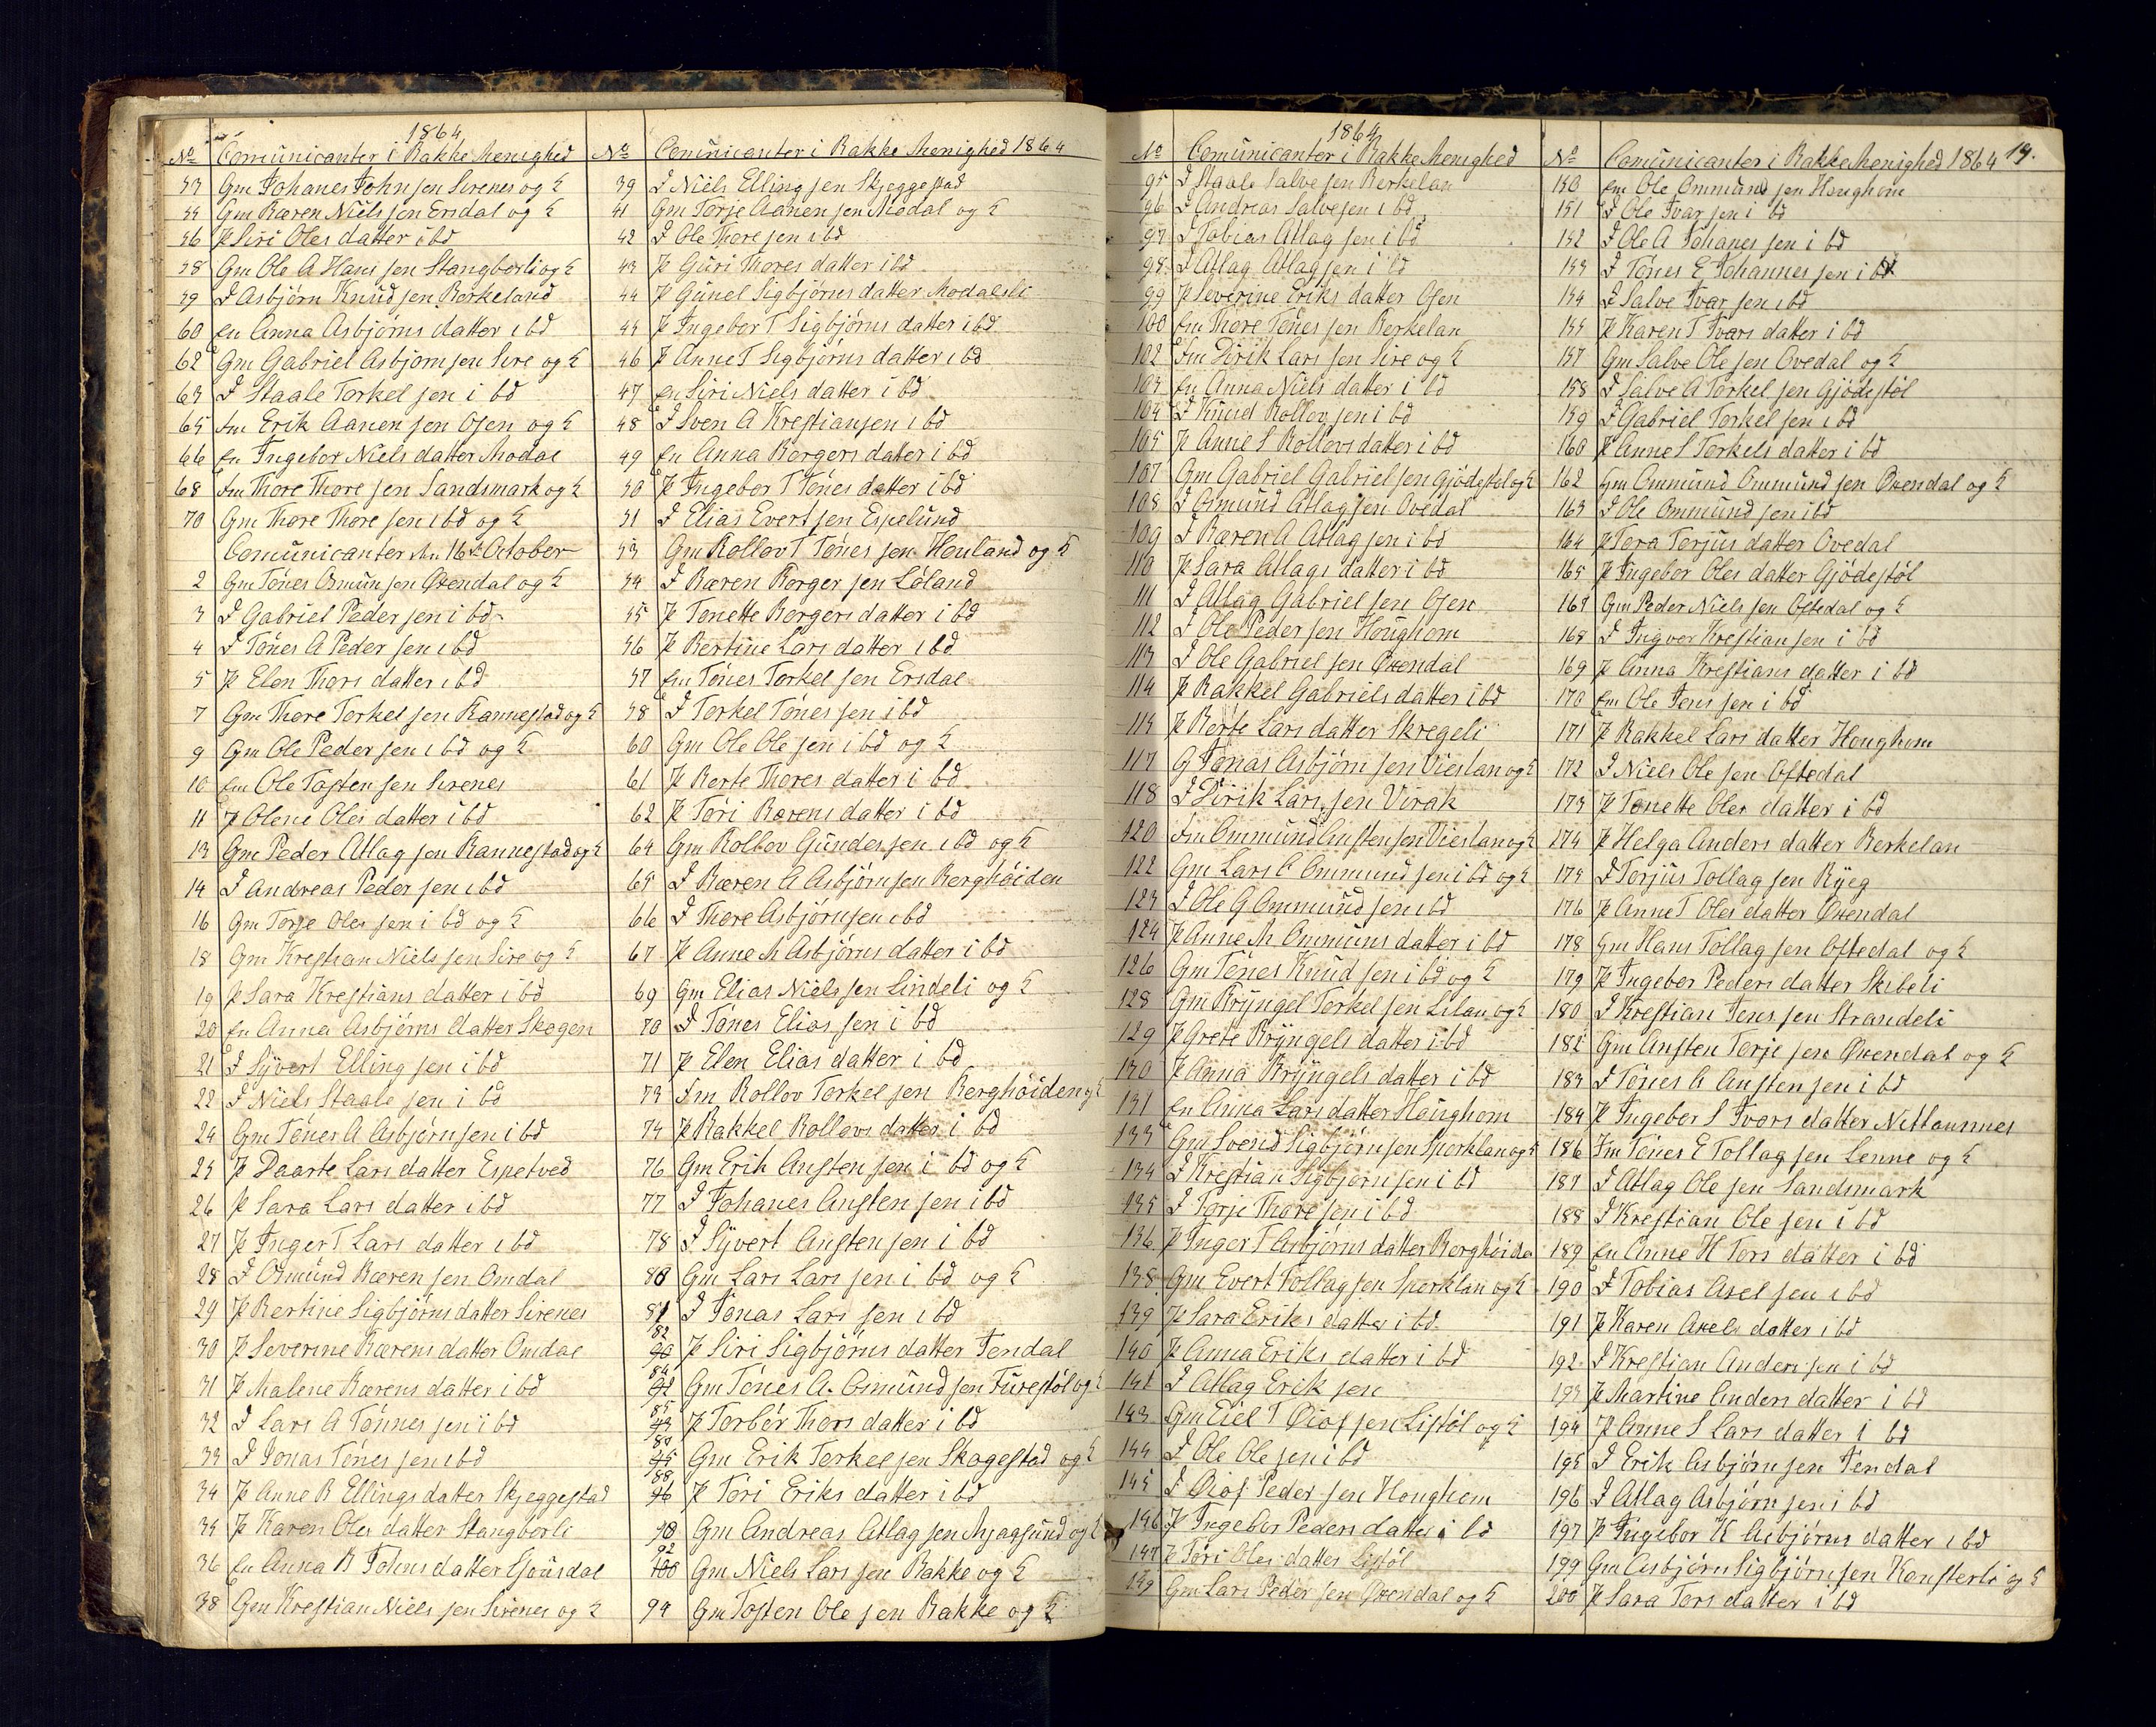 1864
No Comunicanter i Bakke Menighed
53 Gm Johanes Johnsen Sirenes og K
55 Gm Bæren Nielsjen Ersdal og K
56 P Siri Oles datter i bd
58 Gm Ole A Hansjen Stangborli og K
59 D Asbjörn Knudjen Berkeland
60 En Anna Asbjörns datter i bd
62 Gm Gabriel Asbjörnjen Sire og K
63 D Staale Torkeljen i bd
65 Fm Erik Aanenjen Osen og K
66 En Ingebor Niels datter Modal
68 Fm Thore Thorejen Sandsmark og K
70 Gm Thore Thorejen i bd og K
Comunicanter den 16de October
2 Gm Tönes Osmunjen Øxendal og K
3 D Gabriel Pederjen i bd
4 D Tönes A Pederjen i bd
5 P Elen Thors datter i bd
7 Gm Thore Torkeljen Rannestad og K
9 Gm Ole Pederjen i bd og K
10 Em Ole Tostenjen Sirenes
11 P Olene Oles datter i bd
13 Gm Peder Atlagjen Rannestad og K
14 D Andreas Pederjen i bd
16 Gm Torje Olesjen i bd og K
18 Gm Krestian Nielsjen Sire og K
19 P Sara Krestians datter i bd
20 En Anna Asbjörns datter Skogen
21 D Syvert Ellingjen i bd
22 D Niels Staalejen i bd
24 Gm Tönes A Asbjörnjen i bd
25 P Daarte Lars datter Espetved
26 P Sara Lars datter i bd
27 P Inger T Lars datter i bd
28 D Osmund Bærenjen Omdal
29 P Bertine Sigbjörns datter Sirenes
30 P Severine Bærens datter Omdal
31 P Malene Bærens datter i bd
32 D Lars A Tönnesjen i bd
33 D Jonas Tönesjen i bd
34 P Anne B Ellings datter Skjeggestad
35 P Karen Oles datter Stangborli
36 En Anna B Johns datter
38 Gm Krestian Nielsjen Sirenes og K
No Comunicanter i Bakke Menighed 1864
39 D Niels Ellingjen Skjeggestad
41 Gm Torje Aanenjen Modal og K
42 D Ole Thorejen i bd
43 P Guri Thores datter i bd
44 P Gunel Sigbjörns datter Modalsli
45 P Ingebor T Sigbjörns datter i bd
46 P Anne T Sigbjörns datter i bd
47 En Siri Niels datter i bd
48 D Sven A Krestianjen i bd
49 En Anna Borgers datter i bd
50 P Ingebor T Tönes datter i bd
51 D Elias Evertjen Espelund
53 Gm Rollov T Tönesjen Houland og K
54 D Bæren Borgerjen Löland
55 P Tonette Borgers datter i bd
56 P Bertine Lars datter i bd
57 Em Tönes Torkeljen Ersdal
58 D Torkel Tönesjen i bd
60 Gm Ole Olejen i bd og K
61 P Berte Thores datter i bd
62 P Tori Bærens datter i bd
64 Gm Rollov Gundersjen i bd og K
65 D Bæren A Asbjörnjen Berghöiden
66 D Thore Asbjörnjen i bd
67 P Anne M Asbjörns datter i bd
69 Gm Elias Nielsjen Lindeli og K
70 D Tönes Eliasjen i bd
71 P Elen Elias datter i bd
73 Fm Rollov Torkeljen Berghöiden og K
74 P Rakkel Rollovs datter i bd
76 Gm Erik Anstenjen i bd og K
77 D Johanes Anstenjen i bd
78 D Syvert Anstenjen i bd
80 Gm Lars Larsjen i bd og K
81 D Jonas Larsjen i bd
82 P Siri Sigbjörns datter Jendal
84 Gm Tönes A. Osmundjen Furestöl og K
85 P Torbör Thors datter i bd
87 Gm Erik Torkeljen Skogestad og K
88 P Tori Eriks datter i bd
90 Gm Andreas Atlagjen og K
92 Gm Niels Larsjen Bakke og K
94 Gm Tosten Olejen Bakke og K
1864
No Comunicanter i Bakke Menighed
95 D Staale Salvejen Berkelan
96 D Andreas Salvejen i bd
97 D Tobias Atlagjen i bd
98 D Atlag Atlagjen i bd
99 P Severine Eriks datter Osen
100 Em Thore Tönesjen Berkelan
102 Fm Dirik Larsjen Sire og K
103 En Anna Niels datter i bd
104 D Knud Rollovjen i bd
105 P Anne S Rollovs datter i bd
107 Gm Gabriel Gabrieljen Gjödestöl og K
108 D Osmund Atlagjen Ovedal
109 D Bæren A Atlagjen i bd
110 P Sara Atlags datter i bd
111 D Atlag Gabrieljen Osen
112 D Ole Pederjen Houghom
113 D Ole Gabrieljen Øxendal
114 P Rakkel Gabriels datter i bd
115 P Berte Lars datter Skregeli
117 G Jonas Asbjörnjen Vieslan og K
118 D Dirik Larsjen Virak
120 Fm Ommund Anstenjen Vieslan og K
122 Gm Lars C Ommundjen i bd og K
123 D Ole G Ommundjen i bd
124 P Anne M Ommuns datter i bd
126 Gm Tönes Knudjen i bd og K
128 Gm Bryngel Torkeljen Lilan og K
129 P Grete Bryngels datter i bd
130 P Anna Bryngels datter i bd
131 En Anna Lars datter Houghom
133 Gm Svend Sigbjörnjen Sporklan og K
134 D Krestian Sigbjörnjen i bd
135 D Torje Thorejen i bd
136 P Inger T Asbjörns datter Berghöiden
138 Gm Evert Tollagjen Sporklan og K
139 P Sara Eriks datter i bd
140 P Anna Eriks datter i bd
141 D Atlag Erikjen
143 Gm Eiel T Øiosjen Listöl og K
144 D Ole Olejen i bd
145 D Øios Pederjen Houghom
146 P Ingebor Peders datter i bd
147 P Tori Oles datter Listöl
149 Gm Lars Pederjen Øxendal og K
No Comunicanter i Bakke Menighed 1864 19.
150 Em Ole Ommundjen Houghom
151 D Ole Ivarjen i bd
152 D Ole A Johanesjen i bd
153 D Tönes E Johannesjen i bd
154 D Salve Ivarjen i bd
155 P Karen T Ivars datter i bd
157 Gm Salve Olejen Ovedal og K
158 D Salve A Torkeljen Gjödestöl
159 D Gabriel Torkeljen i bd
160 P Anne S Torkels datter i bd
162 Gm Ommund Ommundjen Øxendal og K
163 D Ole Ommundjen i bd
164 P Tora Terjus datter Ovedal
165 P Ingebor Oles datter Gjödestöl
167 Gm Peder Nielsjen Oftedal og K
168 D Ingvor Krestianjen i bd
169 P Anna Krestians datter i bd
170 Em Ole Jensjen i bd
171 P Rakkel Lars datter Houghom
172 D Niels Olejen Oftedal
173 P Tonette Oles datter i bd
174 P Helga Anders datter Berkelan
175 D Torjus Tollagjen Ryeg
176 P Anne T Oles datter Øxendal
178 Gm Hans Tollagjen Oftedal og K
179 P Ingebor Peders datter Skibeli
180 D Krestian Jensjen Strandeli
182 Gm Ansten Torjejen Øxendal og K
183 D Tönes A Anstenjen i bd
184 P Ingebor S Ivars datter Netlannes
186 Fm Tönes E Tollagjen Lenne og K
187 D Atlag Olejen Sandsmark
188 D Krestian Olejen i bd
189 En Anne H Tors datter i bd
190 D Tobias Axeljen i bd
191 P Karen Axels datter i bd
192 D Krestian Andersjen i bd
193 P Martine Anders datter i bd
194 P Anne S Lars datter i bd
195 D Erik Asbjörnjen Jendal
196 D Atlag Asbjörnjen i bd
197 P Ingebor K Asbjörns datter i bd
199 Gm Asbjörn Sigbjörnjen Konsterli og K
200 P Sara Tors datter i bd